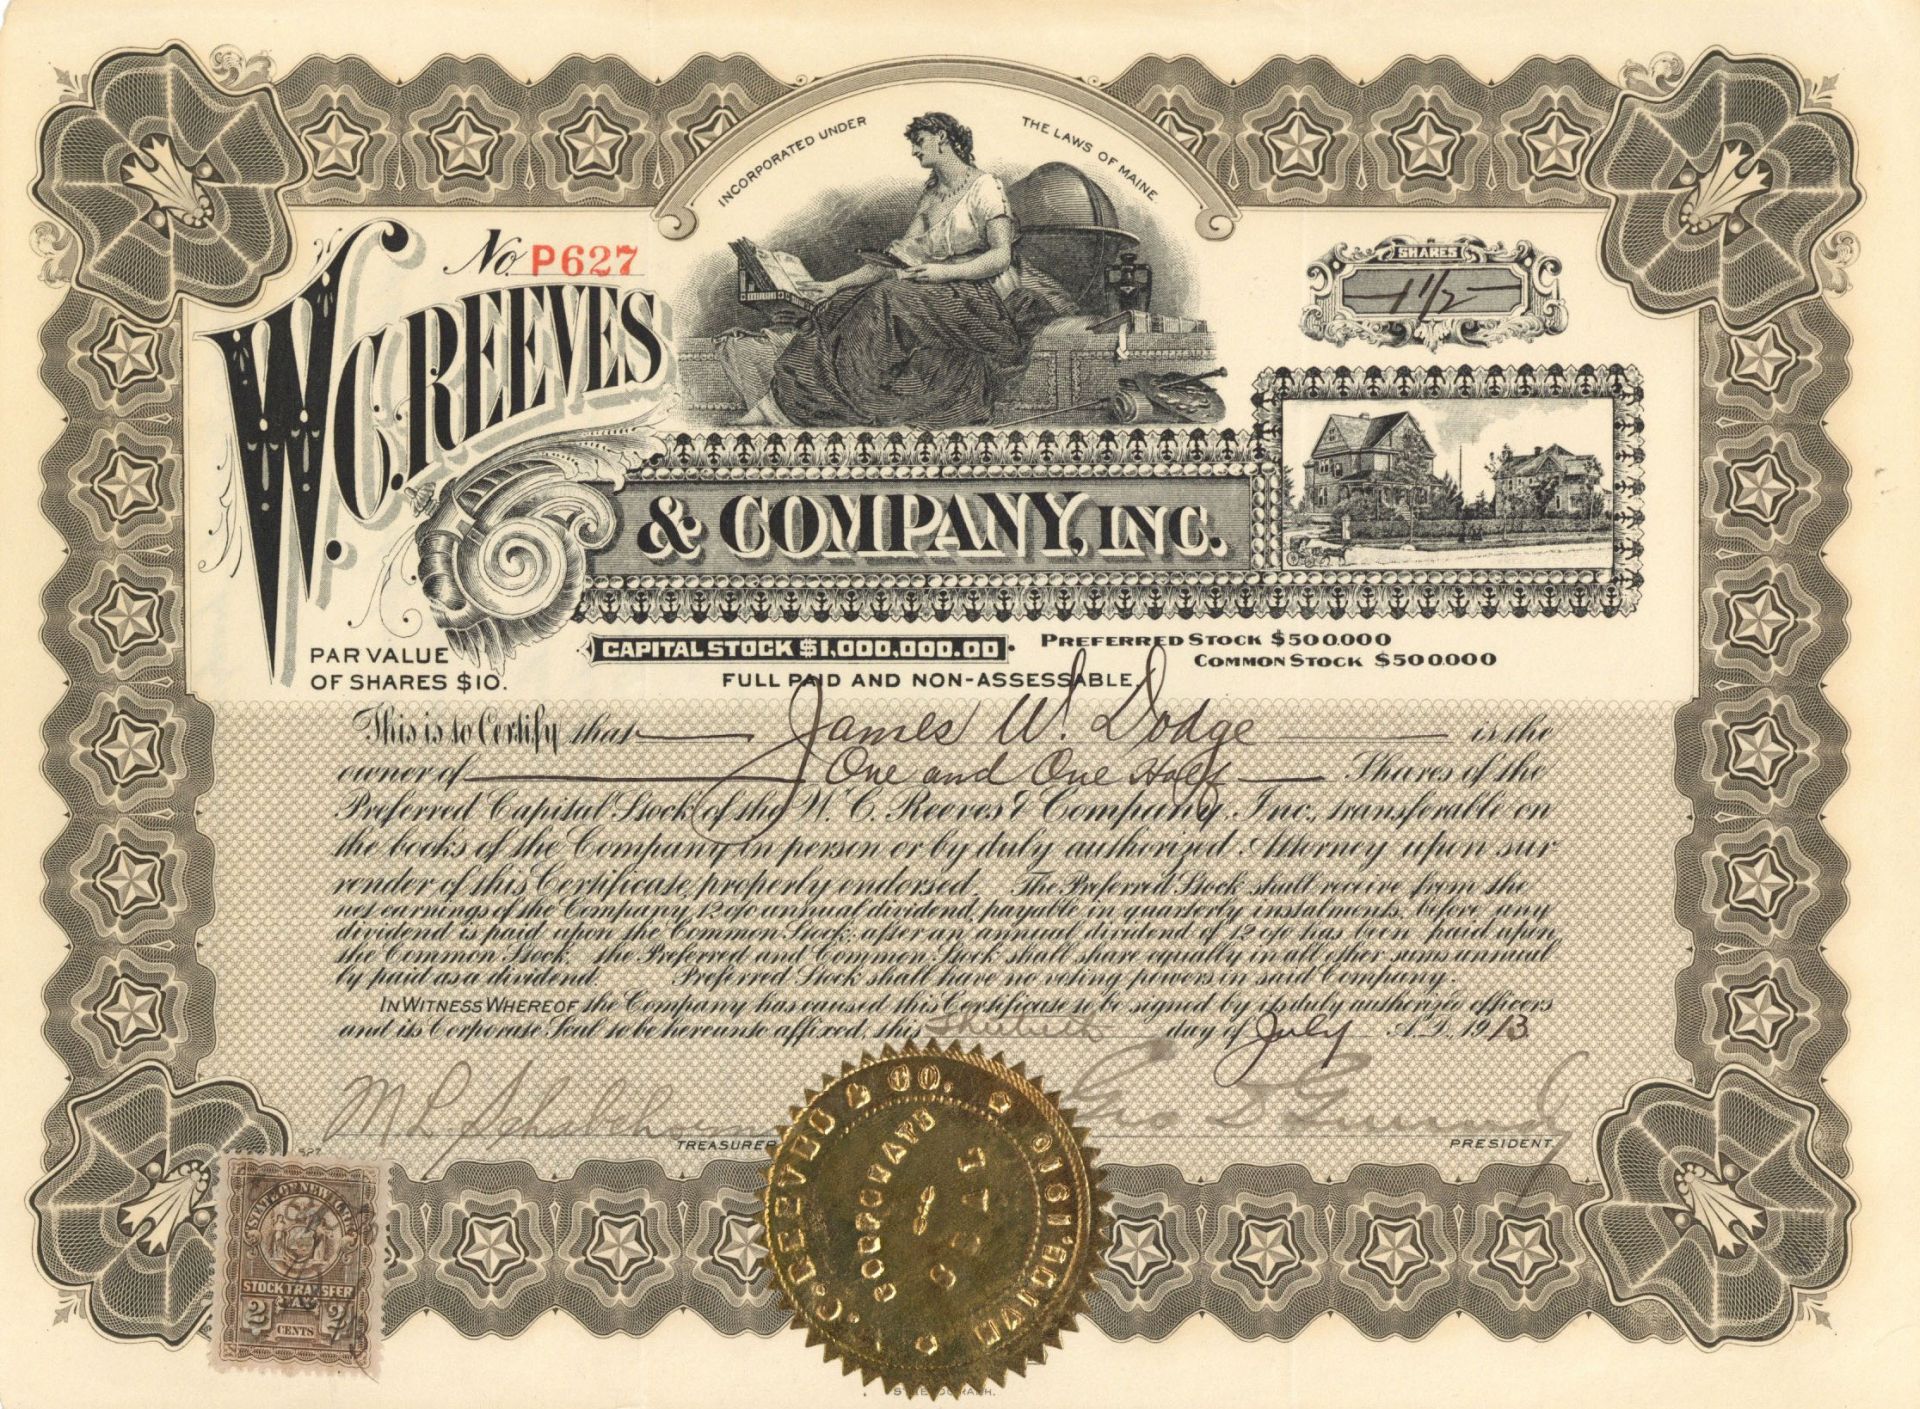 INCORPORATED UNDER THE LAWS OF MAINE
No. P627
SHARES
1 1/2
W.C. REEVES
& COMPANY, INC.
PAR VALUE
OF SHARES $10.
CAPITAL STOCK $1,000,000.00
PREFERRED STOCK $500.000
COMMON STOCK $500.000
FULL PAID AND NON-ASSESSABLE.
This is to Certify that James W. Dodge is the
owner of One and One Half Shares of the
Preferred Capital Stock of the W. C. Reeves & Company, Inc., transferable on
the books of the Company in person or by duly authorized Attorney upon sur
render of this Certificate, properly endorsed. The Preferred Stock shall receive from the
net earnings of the Company, 12 o/o annual dividend, payable in quarterly instalments, before any
dividend is paid upon the Common Stock; after an annual dividend of 12 o/o has been paid upon
the Common Stock, the Preferred and Common Stock shall share equally in all other sums annual
ly paid as a dividend. Preferred Stock shall have no voting powers in said Company.
IN WITNESS WHEREOF the Company has caused this Certificate to be signed by its duly authorized officers
and its Corporate Seal to be hereunto affixed, this Thirtieth day of July A.D. 1913
TREASURER
Geo D Grundy
PRESIDENT
STATE OF NEW YORK
STOCK TRANSFER
TAX
2 2
CENTS
W. C. REEVES & CO. INC. 1910.
CORPORATE
SEAL